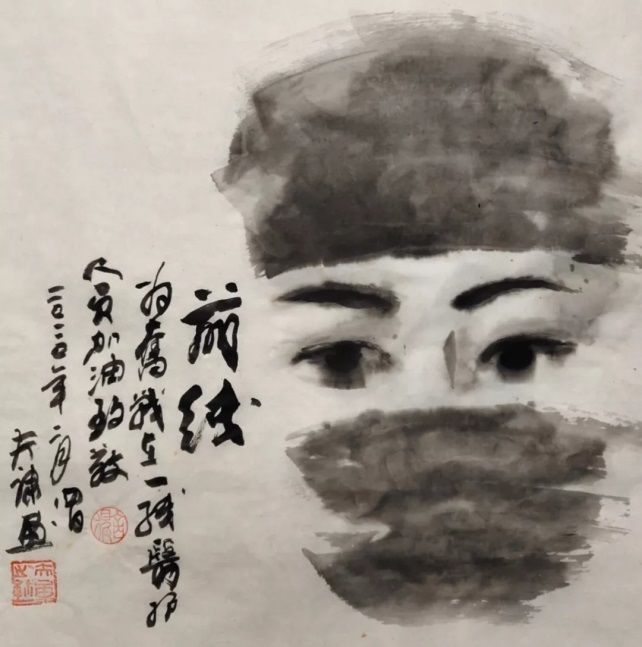 前线
为奮战在一线醫护
人员加油致敬
二〇二〇年二月四日
画